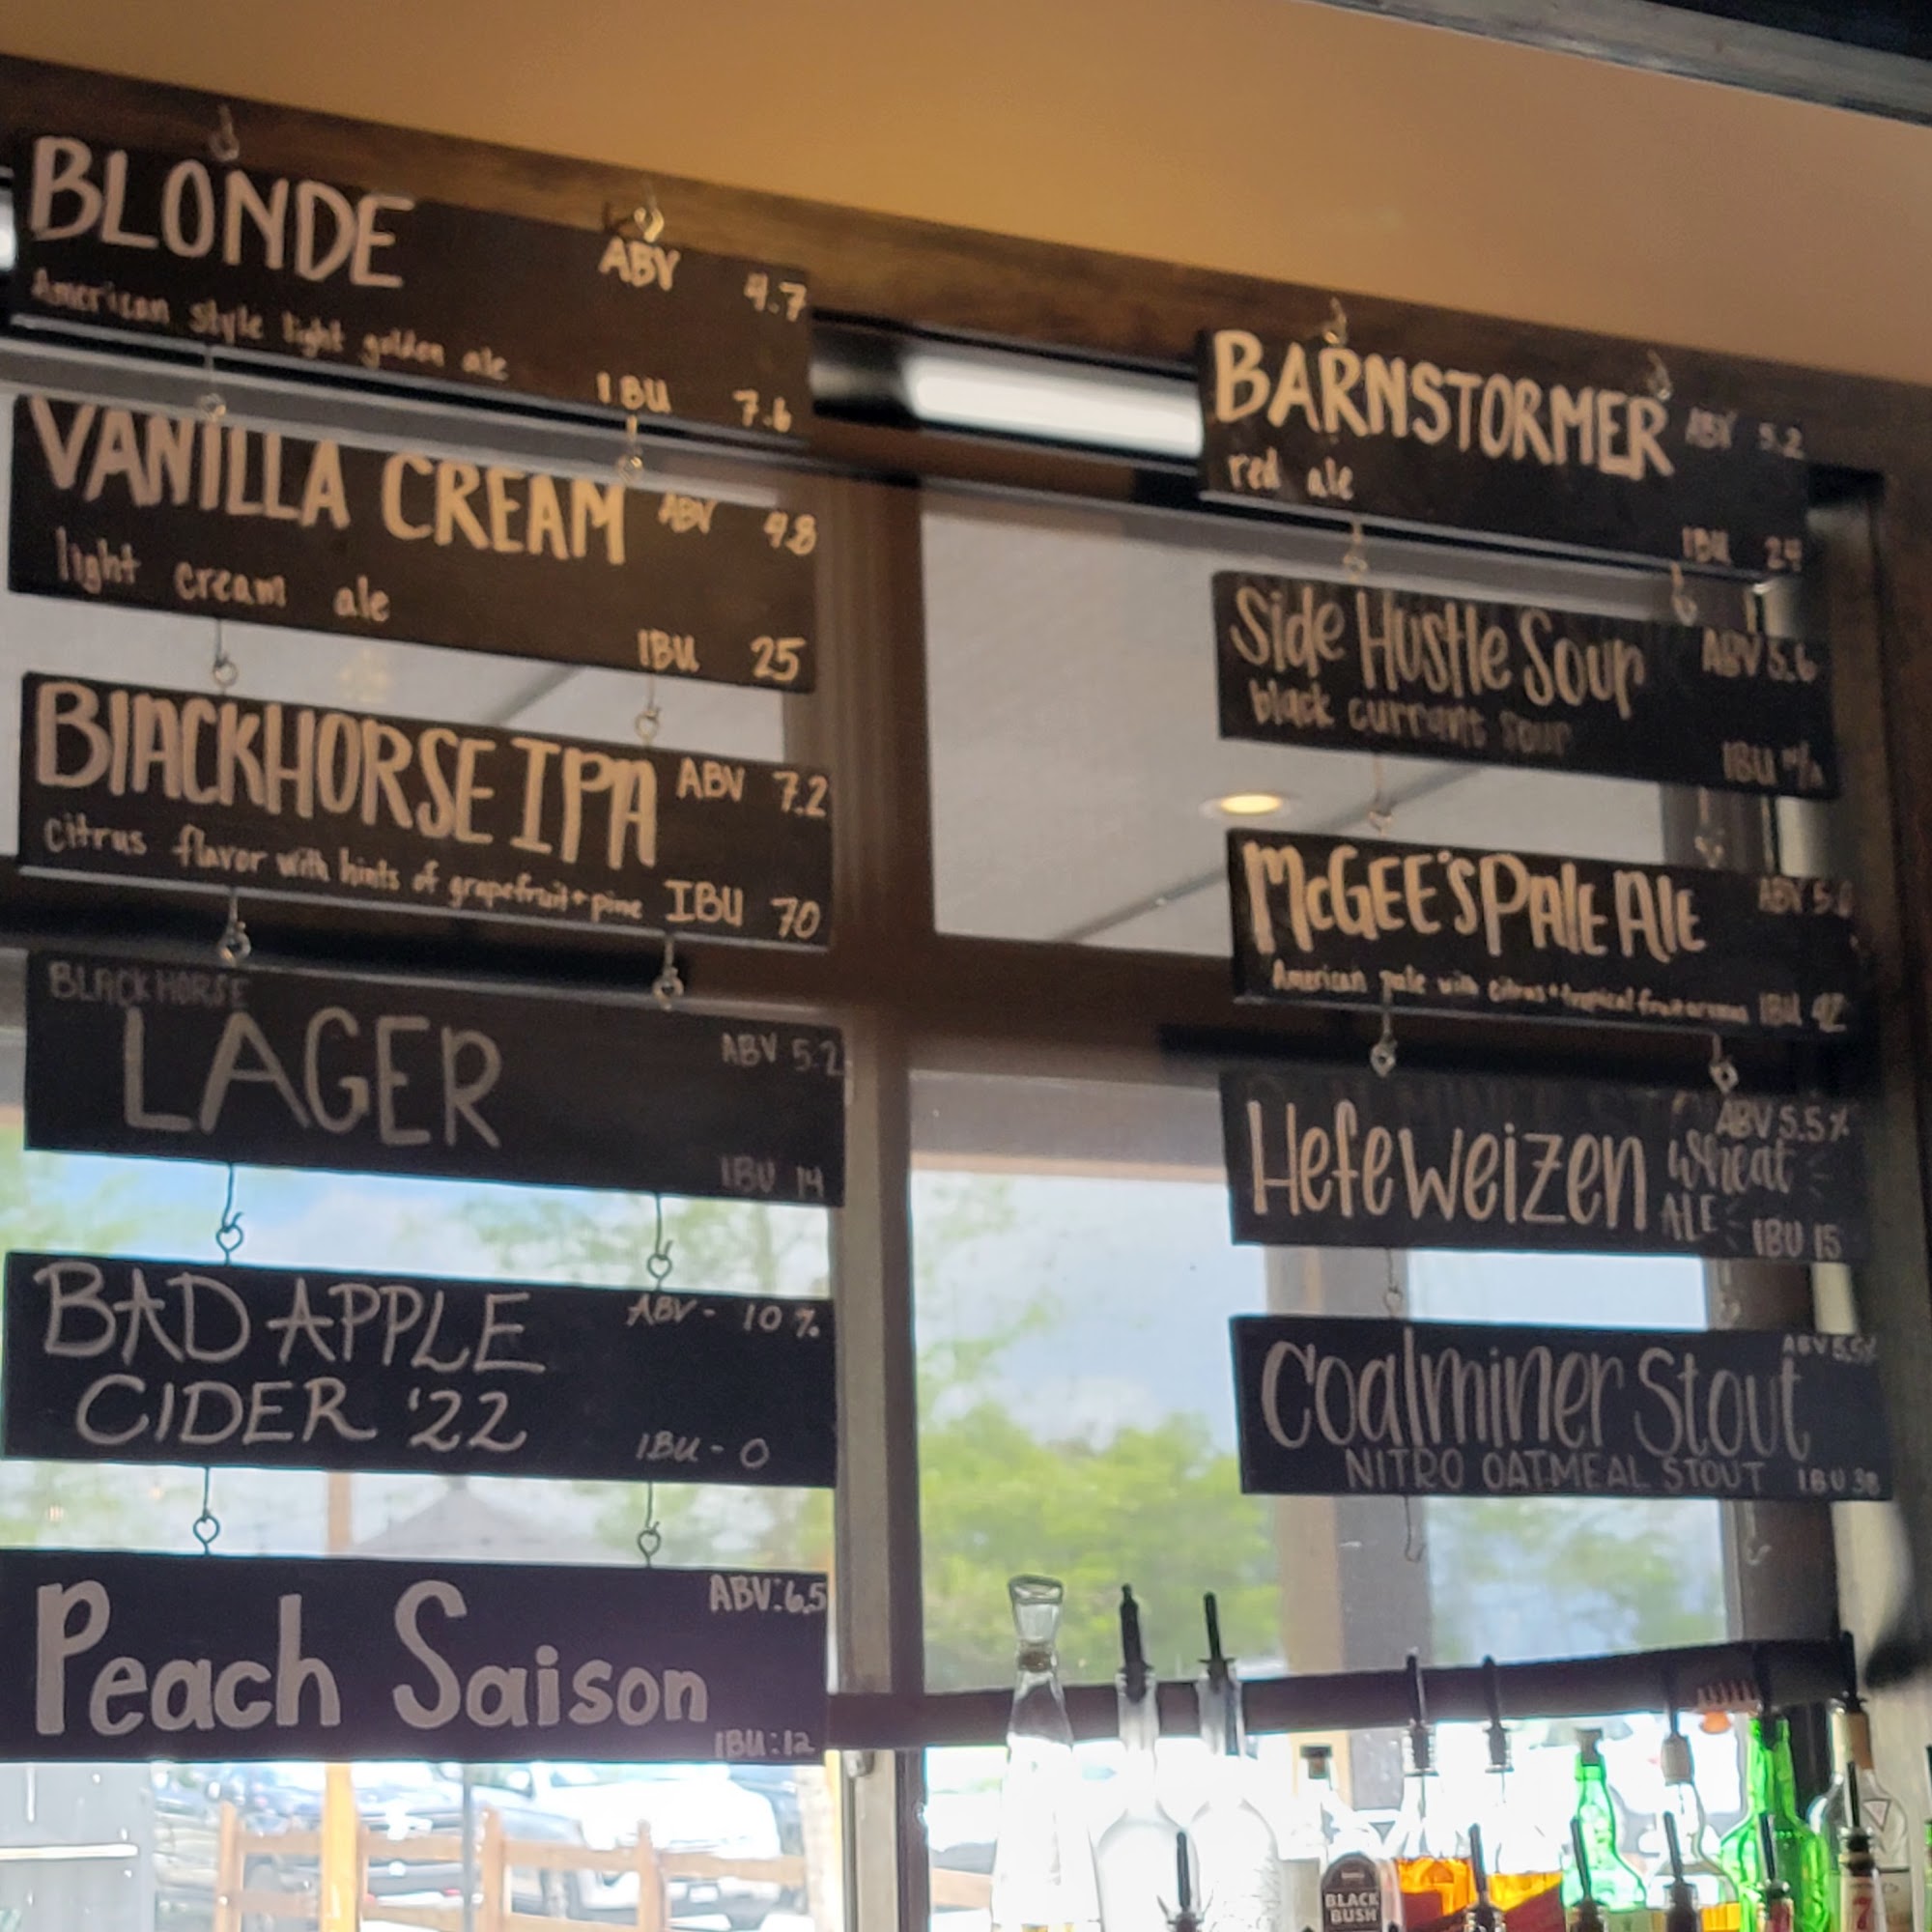 BLONDE
ABV 4.7
American style light golden ale
IBU 7.6
VANILLA CREAM
ABV 4.8
light cream ale
IBU 25
BLACKHORSE IPA
ABV 7.2
citrus flavor with hints of grapefruit + pine
IBU 70
BLACKHORSE
LAGER
ABV 5.2
IBU 14
BAD APPLE
CIDER '22
ABV - 10%
IBU - 0
Peach Saison
ABV: 6.5
IBU: 12
BARNSTORMER
ABV 5.2
red ale
IBU 24
Side Hustle Sour
ABV 5.6
black currant sour
IBU n/a
McGEE'S PALE ALE
ABV
American pale with citrus + tropical fruit aromas
IBU 42
Hefeweizen
ABV 5.5%
wheat
ALE
IBU 15
Coalminer Stout
ABV
NITRO OATMEAL STOUT
IBU
BLACK
BUSH
7